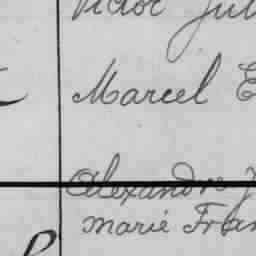 Victor Jul
Marcel E
Alexandre J
Marie Fran